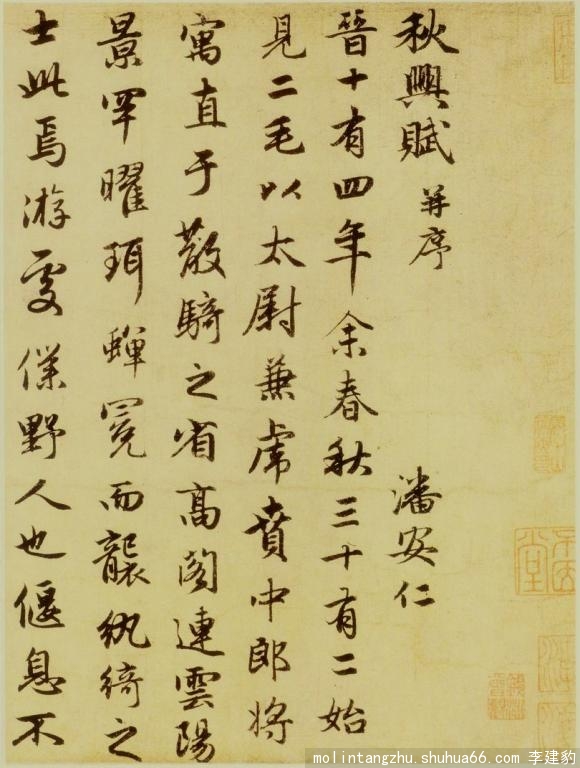 秋興賦 并序 潘安仁
晉十有四年余春秋三十有二始
見二毛以太尉兼虎賁中郎將
寓直于散騎之省高閣連雲陽
景罕曜珥蟬冕而襲紈綺之
士此焉游處僕野人也偃息不
molintangzhu.shuhua66.com 李建豹